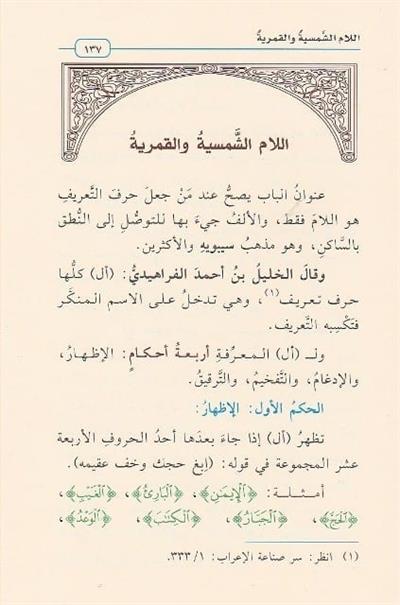 اللام الشَّمسيةُ والقمريةُ
١٣٧
اللام الشَّمسيةُ والقمريةُ
عنوانُ الباب يصحُّ عند مَنْ جعلَ حرفَ التَّعريفِ
هو اللامَ فقط، والألفُ جيءَ بها للتوصُّلِ إلى النُّطق
بالسَّاكنِ، وهو مذهبُ سيبويهِ والأكثرين.
وقالَ الخليلُ بنُ أحمدَ الفراهيديُّ: (أل) كلُّها
حرف تعريف(١)، وهي تدخلُ على الاسم المنكَّر
فتَكْسِبه التَّعريف.
ولـ (أل) المعرِّفةِ أربعةُ أحكامٍ: الإظهارُ،
والإدغامُ، والتَّفخيمُ، والتَّرقيقُ.
الحكمُ الأولُ: الإظهارُ:
تظهرُ (أل) إذا جاءَ بعدَها أحدُ الحروفِ الأربعةَ
عشرَ المجموعةِ في قوله: (إبغ حجك وخف عقيمه).
أمثلة: ﴿الْإِيمَٰنِ﴾، ﴿الْبَارِئُ﴾، ﴿الْغَيْبِ﴾،
﴿الْحَجَّ﴾، ﴿الْجَبَّارُ﴾، ﴿الْكِتَٰبَ﴾، ﴿الْوَعْدُ﴾،
(١) انظر: سر صناعة الإعراب: ١/ ٣٣٣.